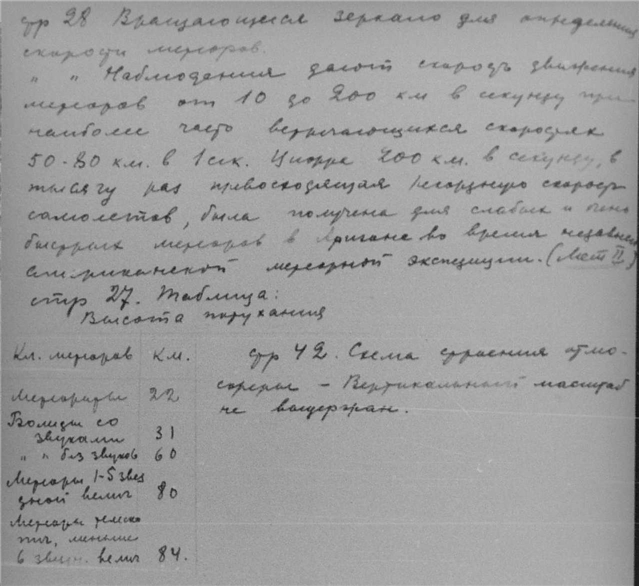 стр 28 Вращающееся зеркало для определения
скорости метеоров.
" " Наблюдения дают скорость движения
метеоров от 10 до 200 км в секунду при
наиболее часто встречающихся скоростях
50-80 км. в 1 сек. Цифра 200 км. в секунду, в
тысячу раз превосходящая рекордную скорость
самолетов, была получена для слабых и очень
быстрых метеоров в Аризоне во время недавней
американской метеорной экспедиции. (Мет II)
стр 27. Таблица:
Высота потухания
Кл. метеоров км.
Метеориты 22
Болиды со
звуками 31
" " без звуков 60
Метеоры 1-5 звез
дной велич 80
Метеоры телеско
пич, меньше
6 звезд. велич 84.
стр 42. Схема строения атмо-
сферы - Вертикальный масштаб
не выдержан.